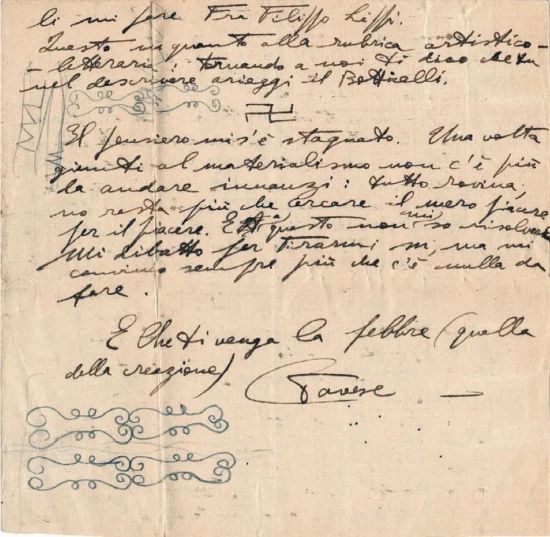 li mi pare Fra Filippo Lippi.
Questo in quanto alla rubrica artistico-
-letteraria; tornando a noi ti dico che tu
nel descrivere arieggi il Botticelli.
Il pensiero mi s'è stagnato. Una volta
giunti al materialismo non c'è più
da andare innanzi: tutto rovina,
no resta più che cercare il mero piacere
per il piacere. E a questo non mi so risolvere.
Mi dibatto per tirarmi su, ma mi
convinco sempre più che c'è nulla da
fare.
E che ti venga la febbre (quella
della creazione)
Pavese